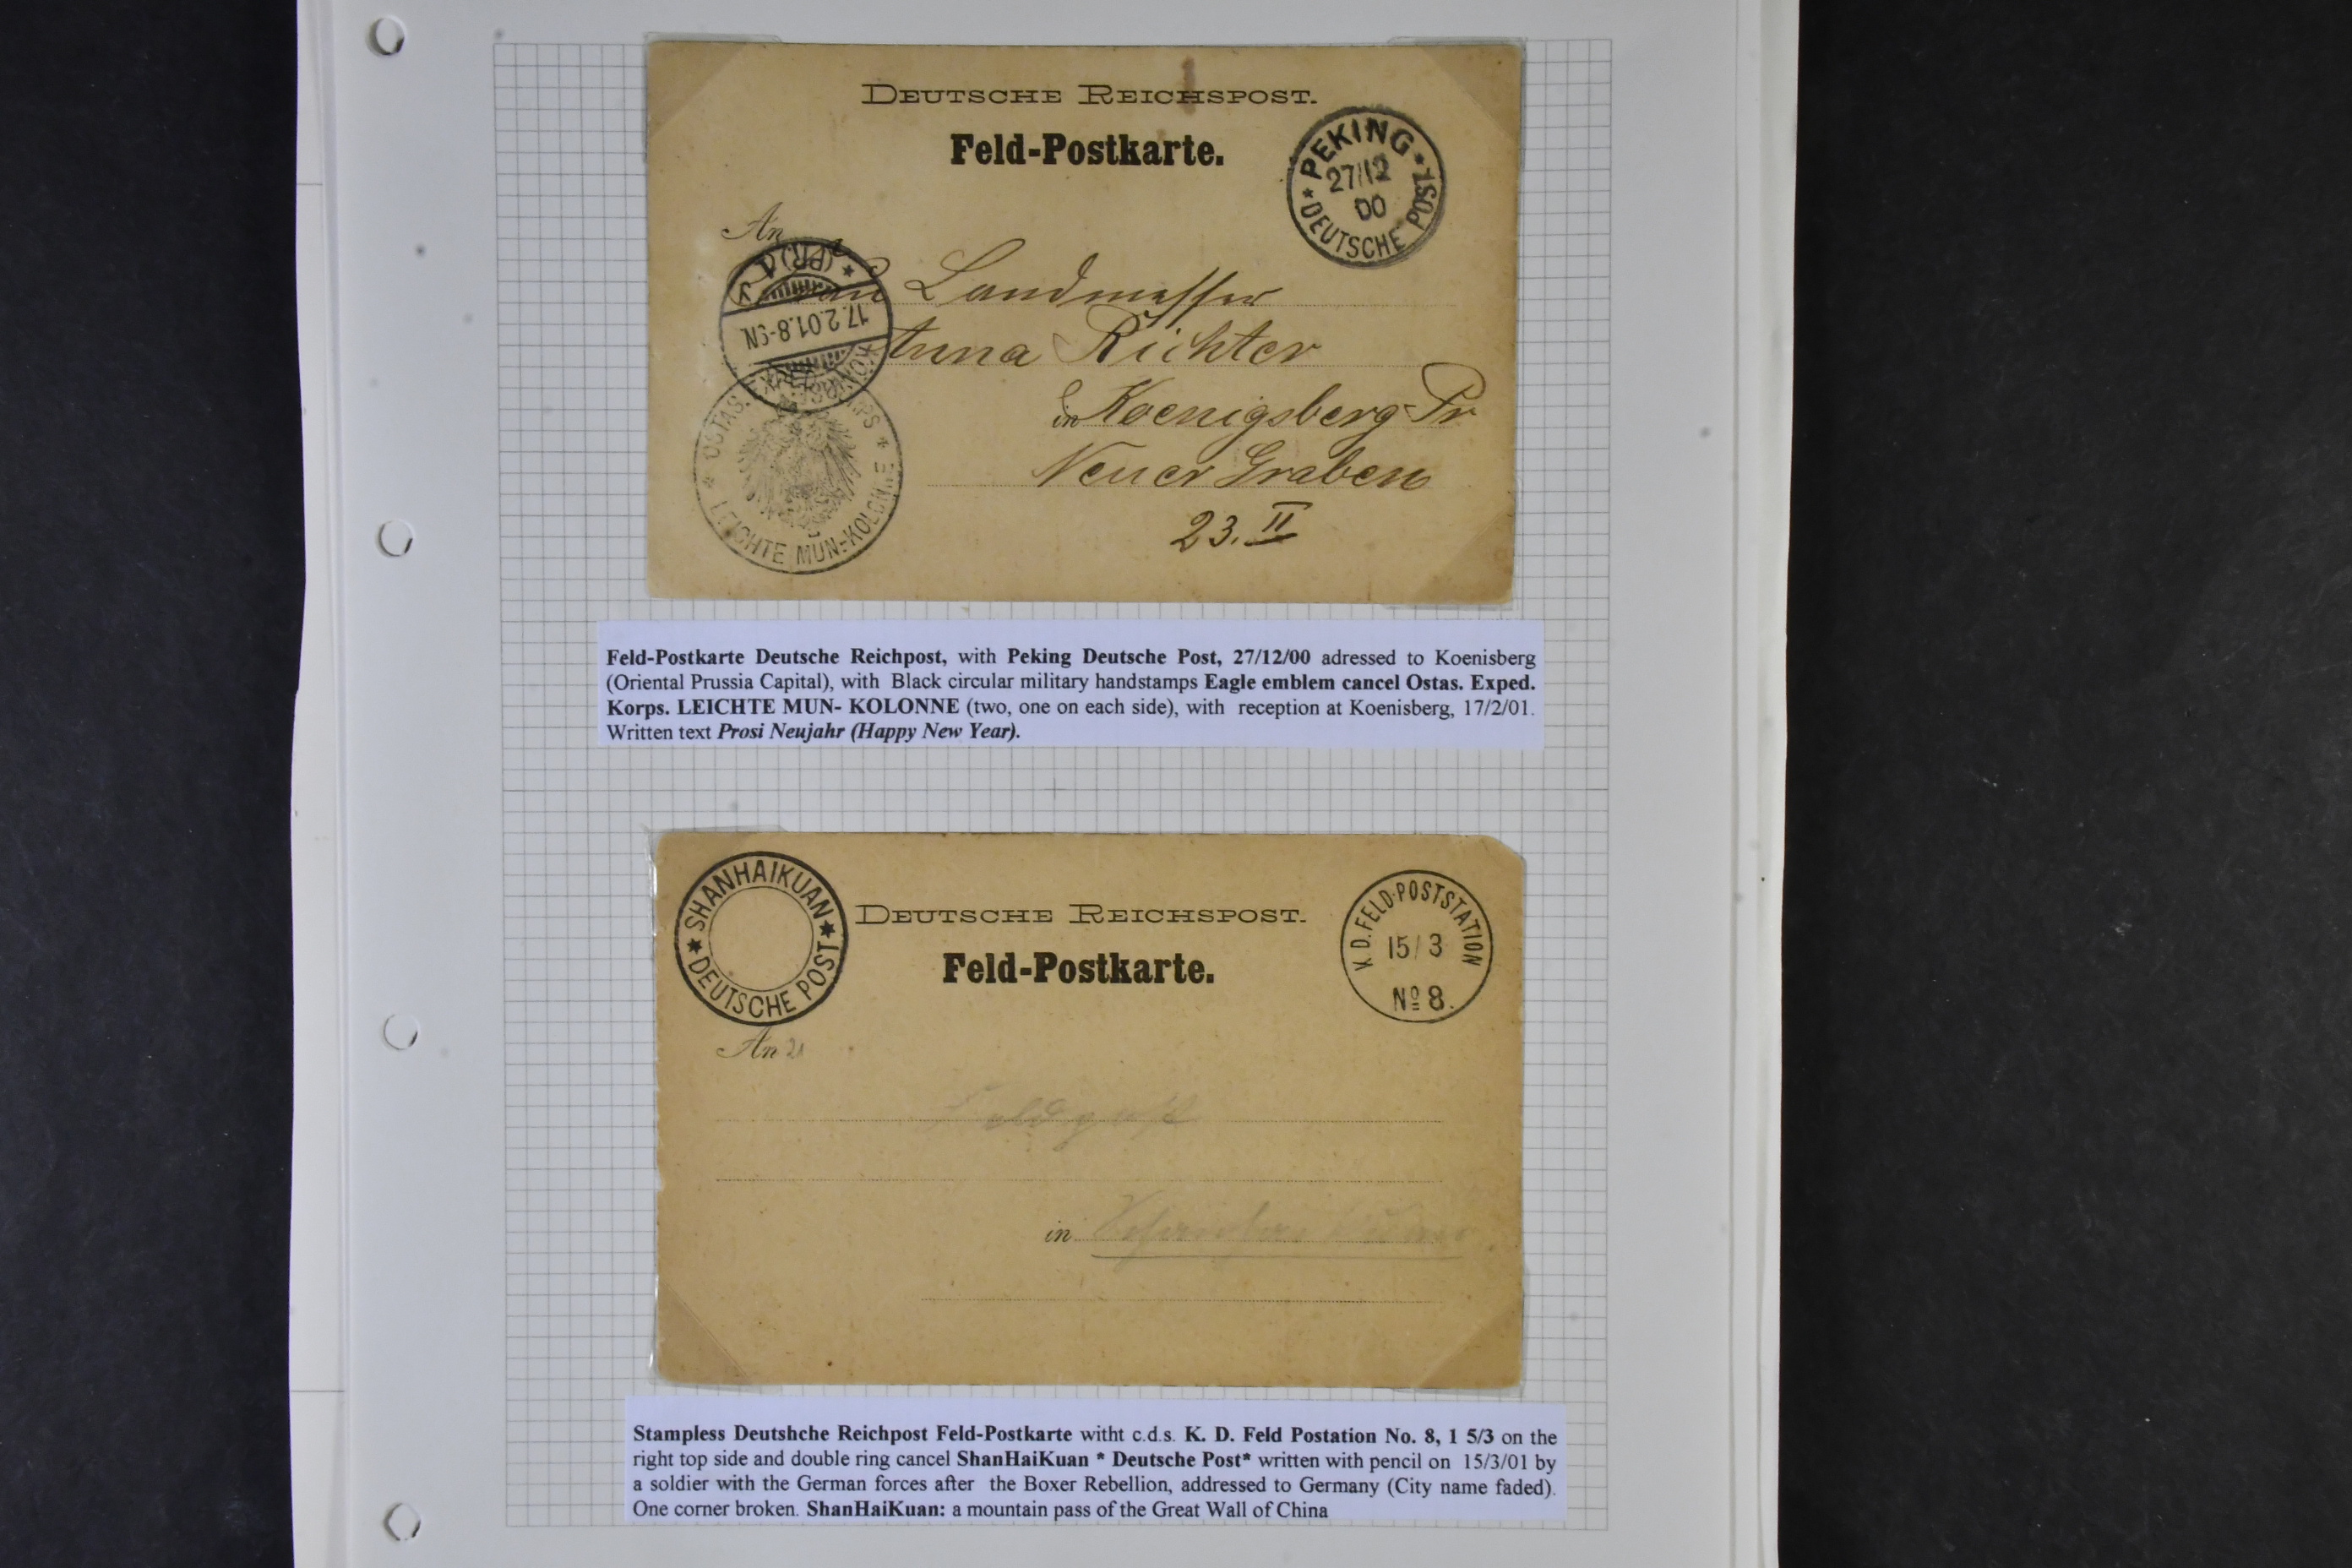 DEUTSCHE REICHSPOST.
Feld-Postkarte.
* PEKING * DEUTSCHE POST
27/12
00
An
Frau Landmesser
Anna Richter
in Koenigsberg-Pr
Neuer Graben
23. II
(PR.) 1
17.2.01.8-9N.
* OSTAS. EXPED. KORPS * LEICHTE MUN-KOLONNE
Feld-Postkarte Deutsche Reichpost, with Peking Deutsche Post, 27/12/00 adressed to Koenisberg
(Oriental Prussia Capital), with Black circular military handstamps Eagle emblem cancel Ostas. Exped.
Korps. LEICHTE MUN- KOLONNE (two, one on each side), with reception at Koenisberg, 17/2/01.
Written text Prosi Neujahr (Happy New Year).
* SHANHAIKUAN * DEUTSCHE POST
DEUTSCHE REICHSPOST.
Feld-Postkarte.
K. D. FELD-POSTSTATION
15/3
Nº 8.
An
in
Stampless Deutshche Reichpost Feld-Postkarte witht c.d.s. K. D. Feld Postation No. 8, 1 5/3 on the
right top side and double ring cancel ShanHaiKuan * Deutsche Post* written with pencil on 15/3/01 by
a soldier with the German forces after the Boxer Rebellion, addressed to Germany (City name faded).
One corner broken. ShanHaiKuan: a mountain pass of the Great Wall of China